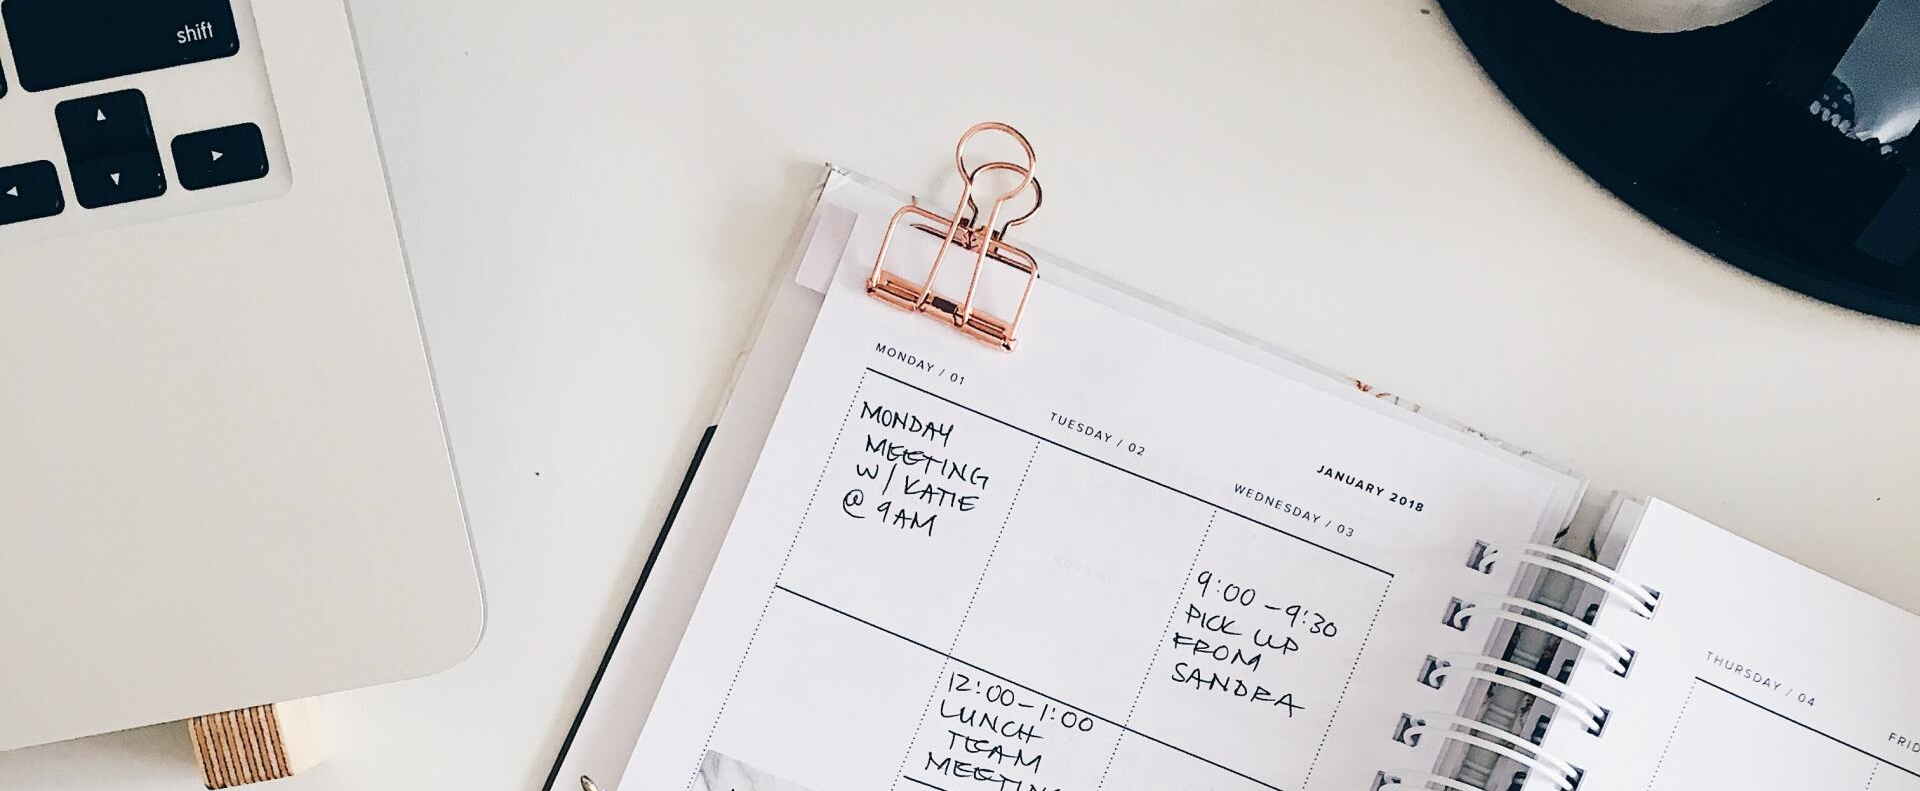 shift
MONDAY / 01
MONDAY
MEETING
W/ KATIE
@ 9AM
TUESDAY / 02
12:00-1:00
LUNCH
TEAM
JANUARY 2018
WEDNESDAY / 03
9:00 - 9:30
PICK UP
FROM
SANDRA
THURSDAY / 04